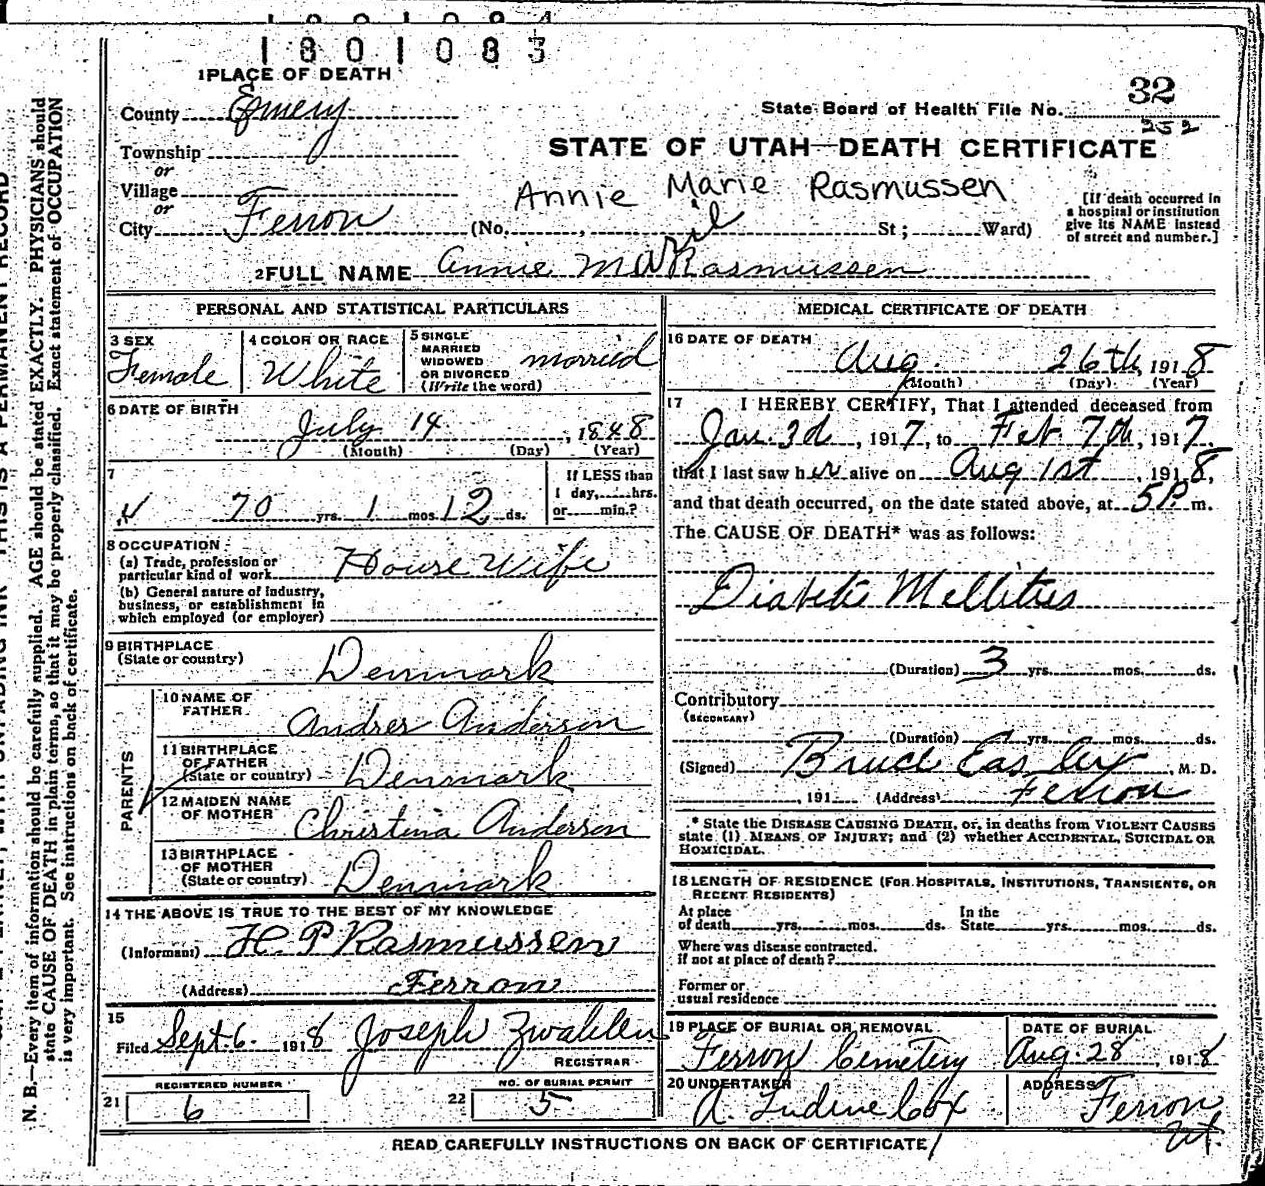 1801083
1 PLACE OF DEATH
County Emery
State Board of Health File No. 32
252
STATE OF UTAH—DEATH CERTIFICATE
Township
or
Village
or
City Ferron
Annie Marie Rasmussen
(No. , St ; Ward)
[If death occurred in
a hospital or institution
give its NAME instead
of street and number.]
2 FULL NAME Annie Rasmussen
PERSONAL AND STATISTICAL PARTICULARS
3 SEX
Female
4 COLOR OR RACE
White
5 SINGLE
MARRIED
WIDOWED
OR DIVORCED
(Write the word)
married
6 DATE OF BIRTH
July 14, 1848
(Month) (Day) (Year)
7
70 yrs. 1 mos. 12 ds.
If LESS than
1 day, hrs.
or min.?
8 OCCUPATION
(a) Trade, profession or
particular kind of work House Wife
(b) General nature of industry,
business, or establishment in
which employed (or employer)
9 BIRTHPLACE
(State or country) Denmark
PARENTS
10 NAME OF
FATHER Andres Anderson
11 BIRTHPLACE
OF FATHER
(State or country) Denmark
12 MAIDEN NAME
OF MOTHER Christina Anderson
13 BIRTHPLACE
OF MOTHER
(State or country) Denmark
14 THE ABOVE IS TRUE TO THE BEST OF MY KNOWLEDGE
(Informant) H. P Rasmussen
(Address) Ferron
15
Filed Sept. 6. 1918 Joseph Zwahlen
REGISTRAR
REGISTERED NUMBER
21 6
NO. OF BURIAL PERMIT
22 5
MEDICAL CERTIFICATE OF DEATH
16 DATE OF DEATH
Aug. 26th, 1918
(Month) (Day) (Year)
17 I HEREBY CERTIFY, That I attended deceased from
Jan. 3d, 1917, to Feb. 7th, 1917.
that I last saw her alive on Aug 1st 1918,
and that death occurred, on the date stated above, at 5 P. m.
The CAUSE OF DEATH* was as follows:
Diabetis Mellitus
(Duration) 3 yrs. mos. ds.
Contributory
(SECONDARY)
(Duration) yrs. mos. ds.
(Signed) Bruce Easley, M. D.
, 191 (Address) Ferron
* State the DISEASE CAUSING DEATH, or, in deaths from VIOLENT CAUSES
state (1) MEANS OF INJURY; and (2) whether ACCIDENTAL, SUICIDAL OR
HOMICIDAL.
18 LENGTH OF RESIDENCE (FOR HOSPITALS, INSTITUTIONS, TRANSIENTS, OR
RECENT RESIDENTS)
At place
of death yrs. mos. ds.
In the
State yrs. mos. ds.
Where was disease contracted.
if not at place of death?
Former or
usual residence
19 PLACE OF BURIAL OR REMOVAL
Ferron Cemetery
DATE OF BURIAL
Aug. 28 1918
20 UNDERTAKER
A. Cox
ADDRESS
Ferron
Ut.
READ CAREFULLY INSTRUCTIONS ON BACK OF CERTIFICATE
N. B.—Every item of information should be carefully supplied. AGE should be stated EXACTLY. PHYSICIANS should
state CAUSE OF DEATH in plain terms, so that it may be properly classified. Exact statement of OCCUPATION
is very important. See instructions on back of certificate.
THIS IS A PERMANENT RECORD